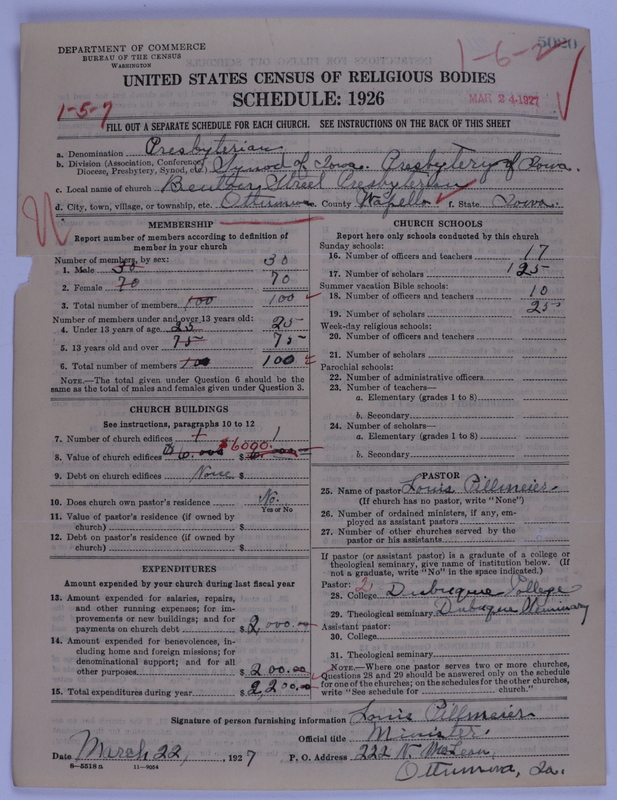 DEPARTMENT OF COMMERCE
BUREAU OF THE CENSUS
WASHINGTON
1-6-2
5020
UNITED STATES CENSUS OF RELIGIOUS BODIES
SCHEDULE: 1926
MAR 24 1927
1-5-7
FILL OUT A SEPARATE SCHEDULE FOR EACH CHURCH. SEE INSTRUCTIONS ON THE BACK OF THIS SHEET
a. Denomination Presbyterian
b. Division (Association, Conference, Diocese, Presbytery, Synod, etc.) Synod of Iowa. Presbytery of Iowa.
c. Local name of church Benton Street Presbyterian
d. City, town, village, or township, etc. Ottumwa e. County Wapello f. State Iowa.
MEMBERSHIP
Report number of members according to definition of
member in your church
Number of members, by sex:
1. Male 30 30
2. Female 70 70
3. Total number of members 100 100
Number of members under and over 13 years old:
4. Under 13 years of age 25 25
5. 13 years old and over 75 75
6. Total number of members 100 100
NOTE.—The total given under Question 6 should be
same as the total of males and females given under Question 3.
CHURCH BUILDINGS
See instructions, paragraphs 10 to 12
7. Number of church edifices 1 1
8. Value of church edifices $6,000 $6000. $
9. Debt on church edifices None $
10. Does church own pastor's residence No.
Yes or No
11. Value of pastor's residence (if owned by
church) $
12. Debt on pastor's residence (if owned by
church) $
EXPENDITURES
Amount expended by your church during last fiscal year
13. Amount expended for salaries, repairs,
and other running expenses; for im-
provements or new buildings; and for
payments on church debt $2000.00
14. Amount expended for benevolences, in-
cluding home and foreign missions; for
denominational support; and for all
other purposes $200.00
15. Total expenditures during year $2,200.00
CHURCH SCHOOLS
Report here only schools conducted by this church
Sunday schools:
16. Number of officers and teachers 17
17. Number of scholars 125
Summer vacation Bible schools:
18. Number of officers and teachers 10
19. Number of scholars 25
Week-day religious schools:
20. Number of officers and teachers
21. Number of scholars
Parochial schools:
22. Number of administrative officers
23. Number of teachers—
a. Elementary (grades 1 to 8)
b. Secondary
24. Number of scholars—
a. Elementary (grades 1 to 8)
b. Secondary
PASTOR
25. Name of pastor Louis Pillmeier
(If church has no pastor, write "None")
26. Number of ordained ministers, if any, em-
ployed as assistant pastors
27. Number of other churches served by the
pastor or his assistants
If pastor (or assistant pastor) is a graduate of a college or
theological seminary, give name of institution below. (If
not a graduate, write "No" in the space indicated.)
Pastor: 2
28. College Dubuque College
29. Theological seminary Dubuque Seminary
Assistant pastor:
30. College
31. Theological seminary
NOTE.—Where one pastor serves two or more churches,
Questions 28 and 29 should be answered only on the schedule
for one of the churches; on the schedules for the other churches,
write "See schedule for church."
Signature of person furnishing information Louis Pillmeier
Official title Minister.
Date March 22, 1927 P. O. Address 222 N. McLean,
8-5518 a 11-9054
Ottumwa, Ia.